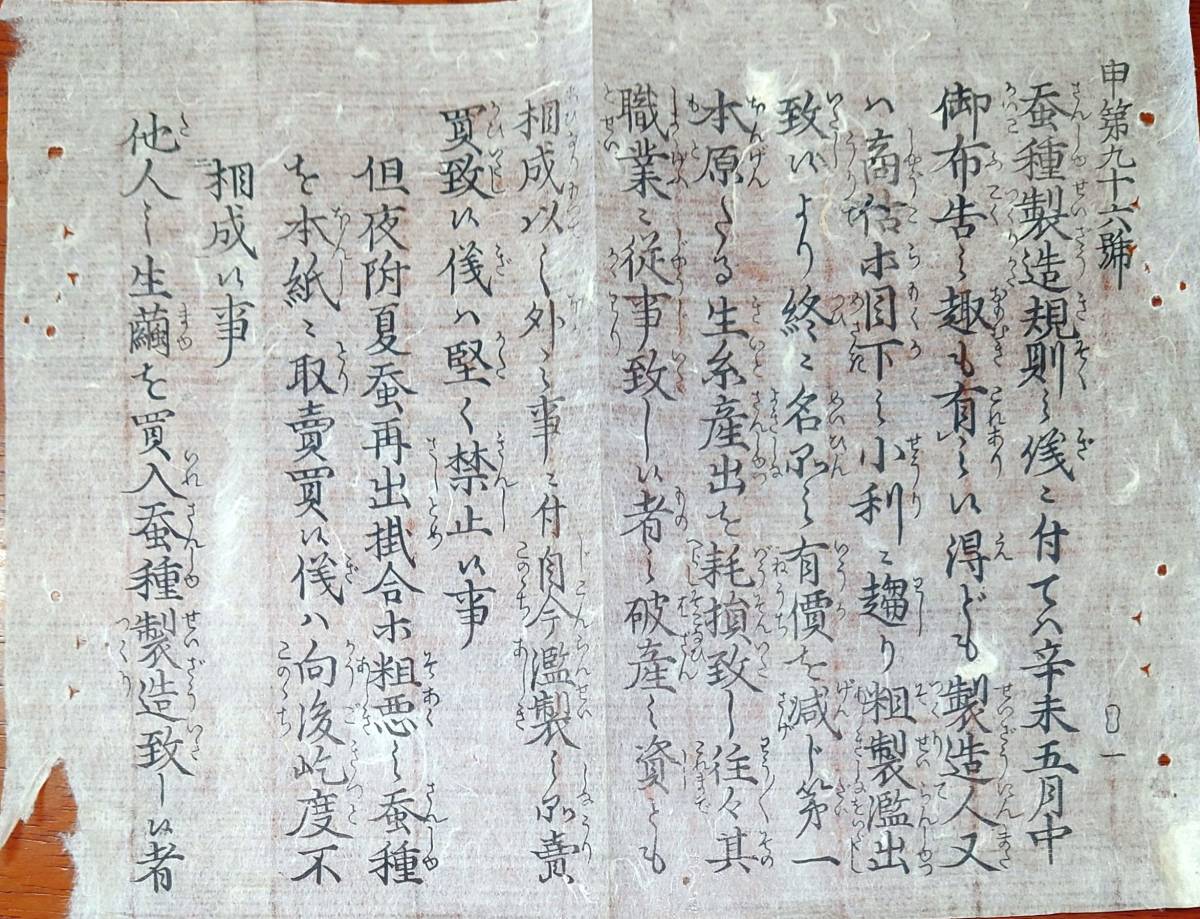 申第九十六號
蚕種製造規則之儀ニ付てハ辛未五月中
御布告之趣も有之候得ども製造人又
ハ商估ホ目下之小利ニ趨り粗製濫出
致候より終ニ名品之有價を減じ第一
本原たる生糸産出を耗損致し往々其
職業ニ従事致し候者之破産之資とも
相成以之外之事ニ付自今濫製之品賣
買致候儀ハ堅く禁止候事
但夜附夏蚕再出掛合ホ粗悪之蚕種
を本紙ニ取賣買候儀ハ向後屹度不
相成候事
他人之生繭を買入蚕種製造致し候者